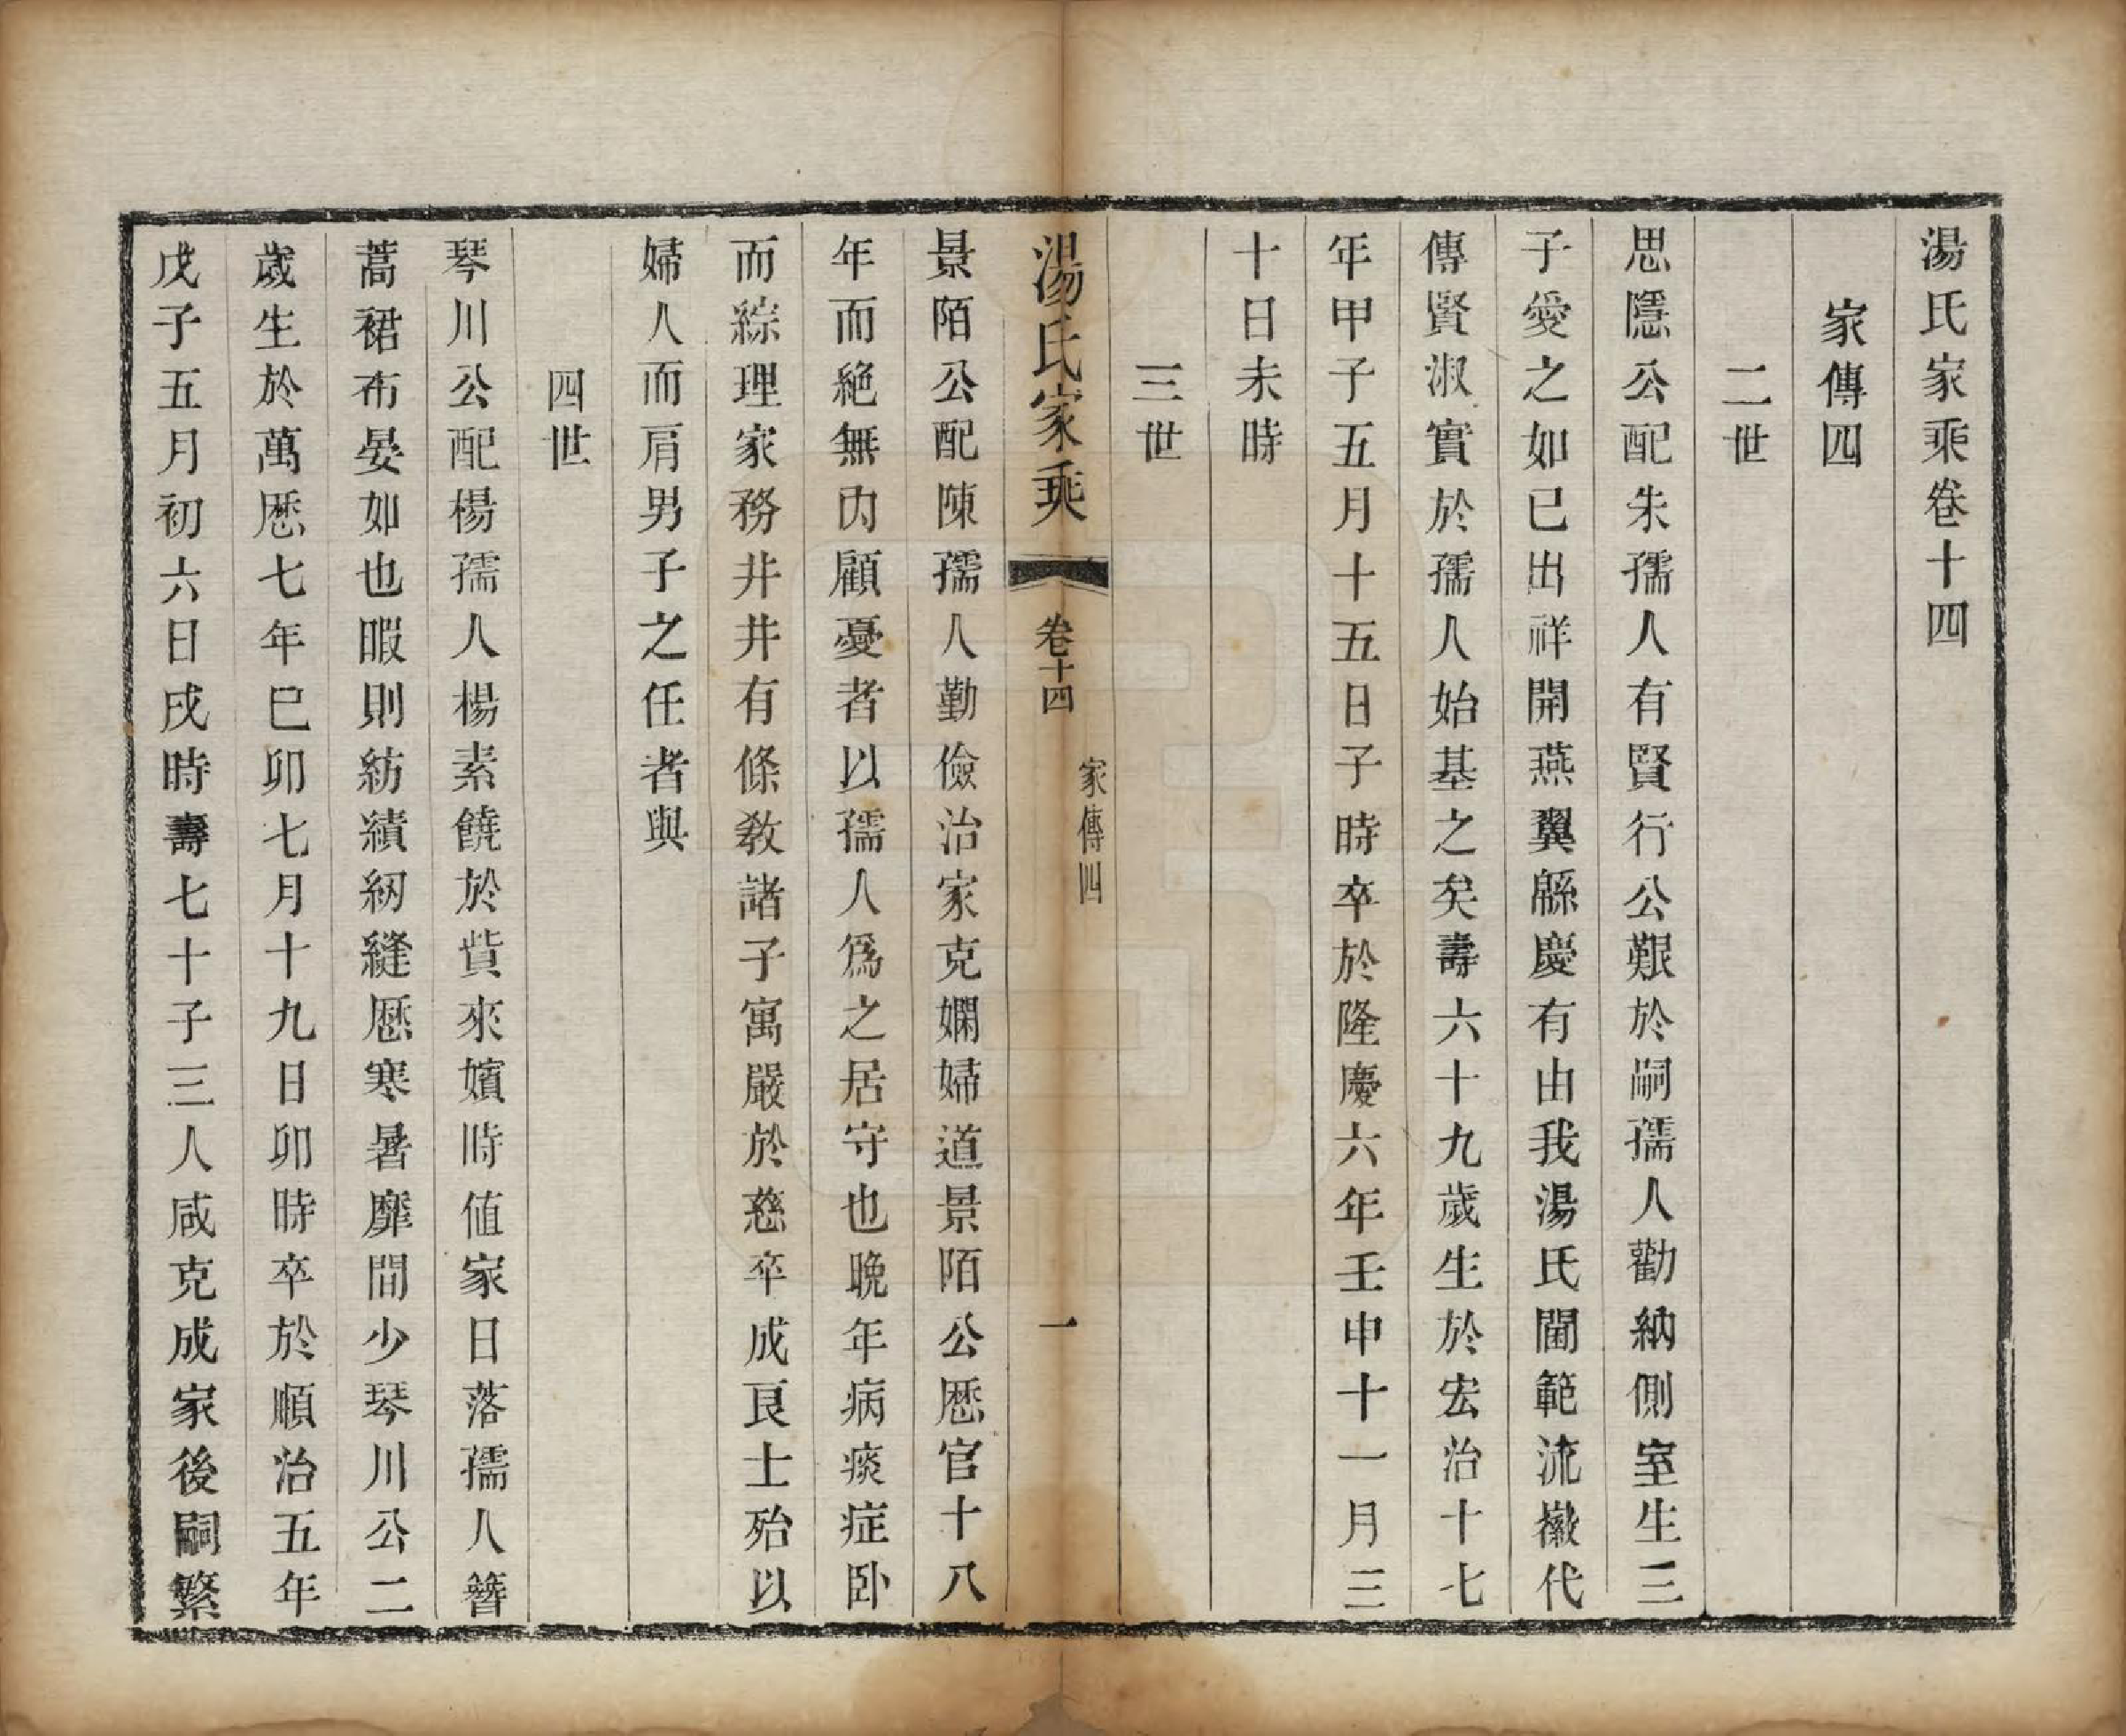 湯氏家乘卷十四
家傳四
二世
思隱公配朱孺人有賢行公艱於嗣孺人勸納側室生三
子愛之如已出祥開燕翼緜慶有由我湯氏閫範流徽代
傳賢淑實於孺人始基之矣壽六十九歲生於宏治十七
年甲子五月十五日子時卒於隆慶六年壬申十一月三
十日未時
三世
湯氏家乘
卷十四
家傳四
一
景陌公配陳孺人勤儉治家克嫻婦道景陌公歷官十八
年而絕無內顧憂者以孺人爲之居守也晚年病痰症卧
而綜理家務井井有條敎諸子寓嚴於慈卒成良士殆以
婦人而肩男子之任者與
四世
琴川公配楊孺人楊素饒於貲來嬪時値家日落孺人簪
蒿裙布晏如也暇則紡績紉縫歷寒暑靡間少琴川公二
歲生於萬歷七年已卯七月十九日卯時卒於順治五年
戊子五月初六日戌時壽七十子三人咸克成家後嗣繁